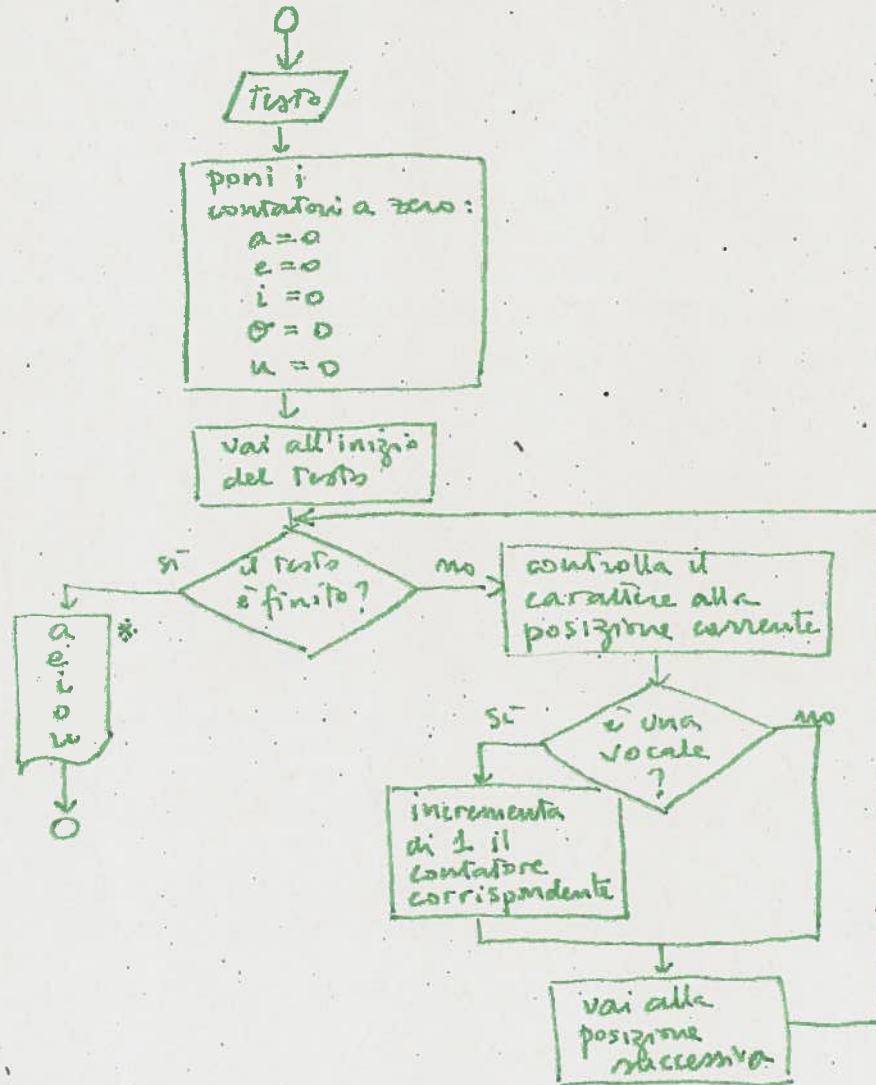 testo
poni i
contatori a zero:
a = 0
e = 0
i = 0
o = 0
u = 0
vai all'inizio
del testo
il testo
è finito?
sì
no
a
e
i
o
u
*
controlla il
carattere alla
posizione corrente
è una
vocale
?
sì
no
incrementa
di 1 il
contatore
corrispondente
vai alla
posizione
successiva